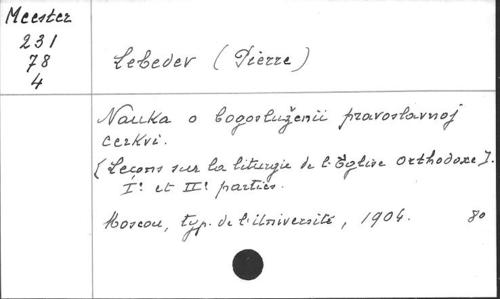 Meester
231
78
4
Lebedev (Pierre)
Nauka o bogosluženii pravoslavnoj
cerkvi.
[Leçons sur la liturgie de l'Église orthodoxe].
I! et II! parties.
Moscou, typ. de l'Université, 1904. 80